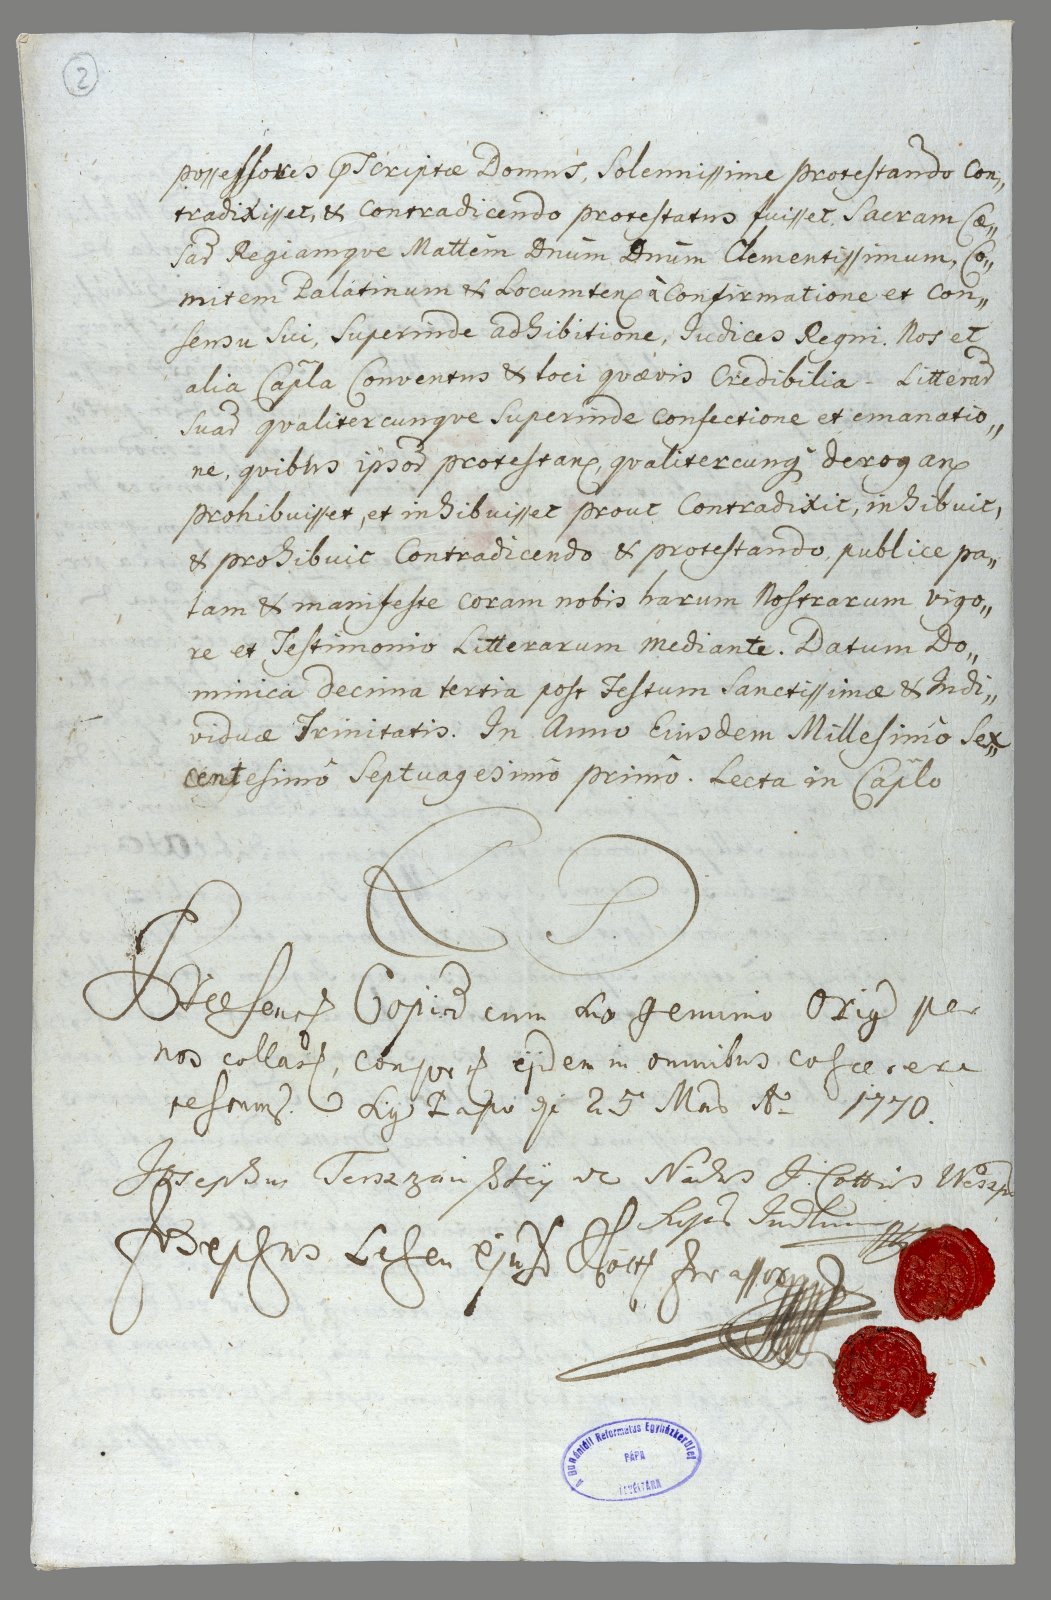 2
possessores pscriptæ Domus, Solennissime protestando Con„
tradixisset, & Contradicendo protestatus fuisset. Sacram Cæ„
sar Regiamqve Mattēm Dnūm Dnūm Clementissimum, Co„
mitem Palatinum & Locumten à Confirmatione et Con„
sensu Sui, Superinde adhibitione, Iudices Regni. Nos et
alia Capla Conventus & loci qvævis Credibilia - Litterar
Suar qvalitercunqve Superinde Confectione et emanatio„
ne, qvibus ipsor protestan, qvalitercunq derogan
prohibuisset, et inhibuisset prout Contradixit, inhibuit,
& prohibuit Contradicendo & protestando, publice pa„
lam & manifeste coram nobis harum Nostrarum vigo„
re et Testimonio Litterarum mediante. Datum Do„
minica decima tertia post Festum Sanctissimæ & Indi„
viduæ Trinitatis. In Anno Eiusdem Millesimô Sex„
centesimô Septuagesimô primô. Lecta in Caplo
L S
Præsens Copia cum suo genuino Orig per
nos collat, conform ejdem in omnibus cohærere
testamur. Sig Papæ die 25 Mar Ao 1770.
Josephus de Nádas J. Cottus
Judlium
Josephus ejusd Cott Jur assor
A Dunántúli Református Egyházkerület
PÁPA
LEVÉLTÁRA